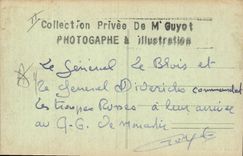 II
Collection Privée De Mr Guyot
PHOTOGAPHE à illustration
Le Général Le Blois et
le Général Diderichs commandant
les troupes Russes à leur arrivée
au Q.G. de
Guyot